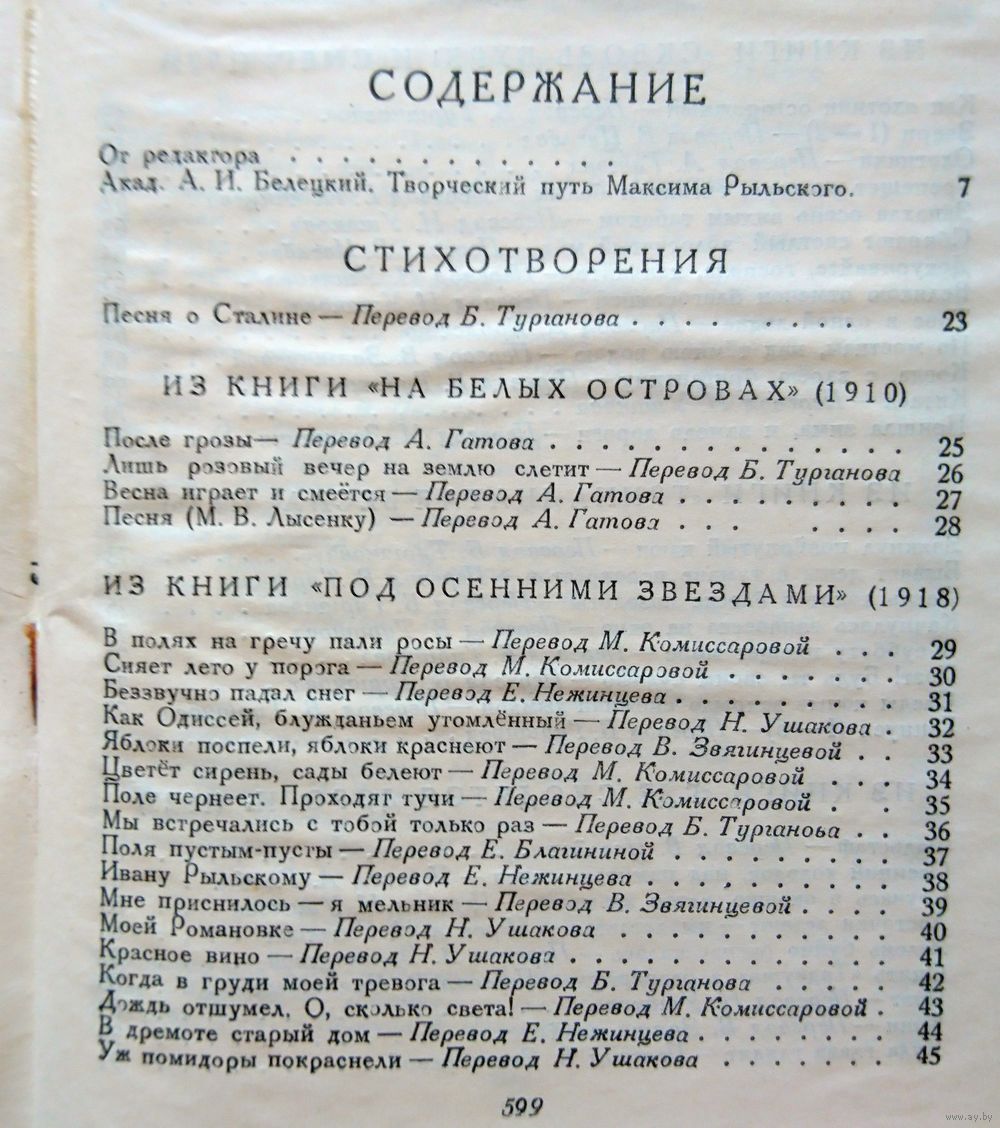 СОДЕРЖАНИЕ
От редактора . . . . . . . . . . . . .
Акад. А. И. Белецкий. Творческий путь Максима Рыльского. 7
СТИХОТВОРЕНИЯ
Песня о Сталине — Перевод Б. Турганова . . . . . . . . 23
ИЗ КНИГИ «НА БЕЛЫХ ОСТРОВАХ» (1910)
После грозы — Перевод А. Гатова . . . . . . . . . . . . 25
Лишь розовый вечер на землю слетит — Перевод Б. Турганова 26
Весна играет и смеётся — Перевод А. Гатова . . . . . . . . . 27
Песня (М. В. Лысенку) — Перевод А. Гатова . . . . . . . 28
ИЗ КНИГИ «ПОД ОСЕННИМИ ЗВЕЗДАМИ» (1918)
В полях на гречу пали росы — Перевод М. Комиссаровой . . . 29
Сияет лето у порога — Перевод М. Комиссаровой . . . . . . . 30
Беззвучно падал снег — Перевод Е. Нежинцева . . . . . . . . 31
Как Одиссей, блужданьем утомлённый — Перевод Н. Ушакова . 32
Яблоки поспели, яблоки краснеют — Перевод В. Звягинцевой . . 33
Цветёт сирень, сады белеют — Перевод М. Комиссаровой . . . 34
Поле чернеет. Проходят тучи — Перевод М. Комиссаровой . . 35
Мы встречались с тобой только раз — Перевод Б. Турганова . . 36
Поля пустым-пусты — Перевод Е. Благининой . . . . . . . . . 37
Ивану Рыльскому — Перевод Е. Нежинцева . . . . . . . . . . 38
Мне приснилось — я мельник — Перевод В. Звягинцевой . . . . 39
Моей Романовке — Перевод Н. Ушакова . . . . . . . . . . . 40
Красное вино — Перевод Н. Ушакова . . . . . . . . . . . . . 41
Когда в груди моей тревога — Перевод Б. Турганова . . . . . 42
Дождь отшумел. О, сколько света! — Перевод М. Комиссаровой . 43
В дремоте старый дом — Перевод Е. Нежинцева . . . . . . . . 44
Уж помидоры покраснели — Перевод Н. Ушакова . . . . . . . 45
599
www.ay.by